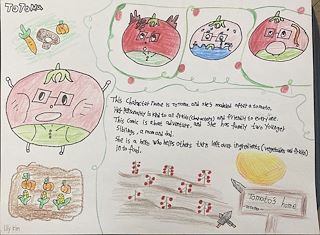 TOTOMA
This character name is Totoma, and she's modeled after a tomato.
Her personality is kind to all fruits (characters) and friendly to everyone.
This comic is about adventure, and she has family two younger
siblings, a mom and dad.
She is a hero who helps others turn left over ingredients (vegetables and fruits)
in to food.
Tomato's home
Lily Kin